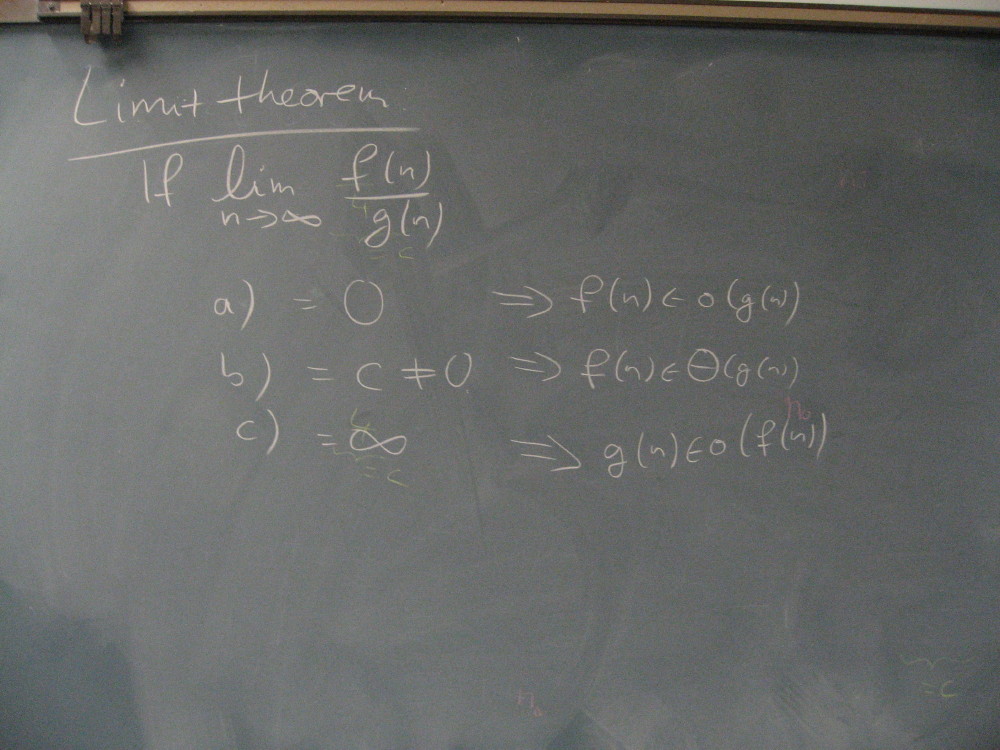 Limit theorem
If lim n→∞ f(n)/g(n)
a) = 0 ⇒ f(n) ∈ o(g(n))
b) = c ≠ 0 ⇒ f(n) ∈ Θ(g(n))
c) = ∞ ⇒ g(n) ∈ o(f(n))
= c
= c
n₀